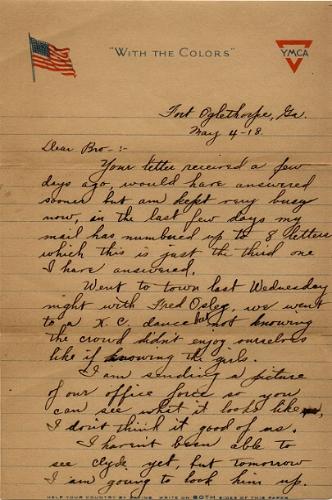 "WITH THE COLORS"
YMCA
Fort Oglethorpe, Ga.
May 4-18.
Dear Bro-:-
Your letter received a few
days ago, would have answered
sooner but am kept very busy
now, in the last few days my
mail has numbered up to 8 letters
which this is just the third one
I have answered.
Went to town last Wednesday
night with Fred Osleg, we went
to a K.C. dance but not knowing
the crowd didn't enjoy ourselves
like if knowing the girls.
I am sending a picture
of our office force so you
can see what it looks like,
I don't think it good of me.
I haven't been able to
see Clyde yet, but tomorrow
I am going to look him up.
HELP YOUR COUNTRY BY SAVING. WRITE ON BOTH SIDES OF THIS PAPER